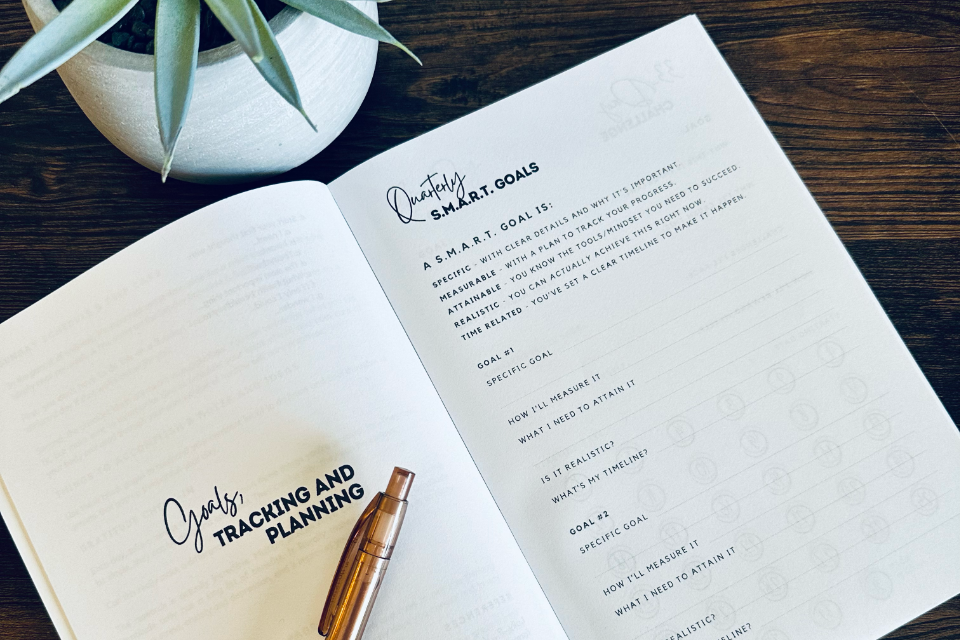 Goals,
TRACKING AND
PLANNING
Quarterly
S.M.A.R.T. GOALS
A S.M.A.R.T. GOAL IS:
SPECIFIC - WITH CLEAR DETAILS AND WHY IT'S IMPORTANT.
MEASURABLE - WITH A PLAN TO TRACK YOUR PROGRESS.
ATTAINABLE - YOU KNOW THE TOOLS/MINDSET YOU NEED TO SUCCEED.
REALISTIC - YOU CAN ACTUALLY ACHIEVE THIS RIGHT NOW.
TIME RELATED - YOU'VE SET A CLEAR TIMELINE TO MAKE IT HAPPEN.
GOAL #1
SPECIFIC GOAL
HOW I'LL MEASURE IT
WHAT I NEED TO ATTAIN IT
IS IT REALISTIC?
WHAT'S MY TIMELINE?
GOAL #2
SPECIFIC GOAL
HOW I'LL MEASURE IT
WHAT I NEED TO ATTAIN IT
REALISTIC?
TIMELINE?